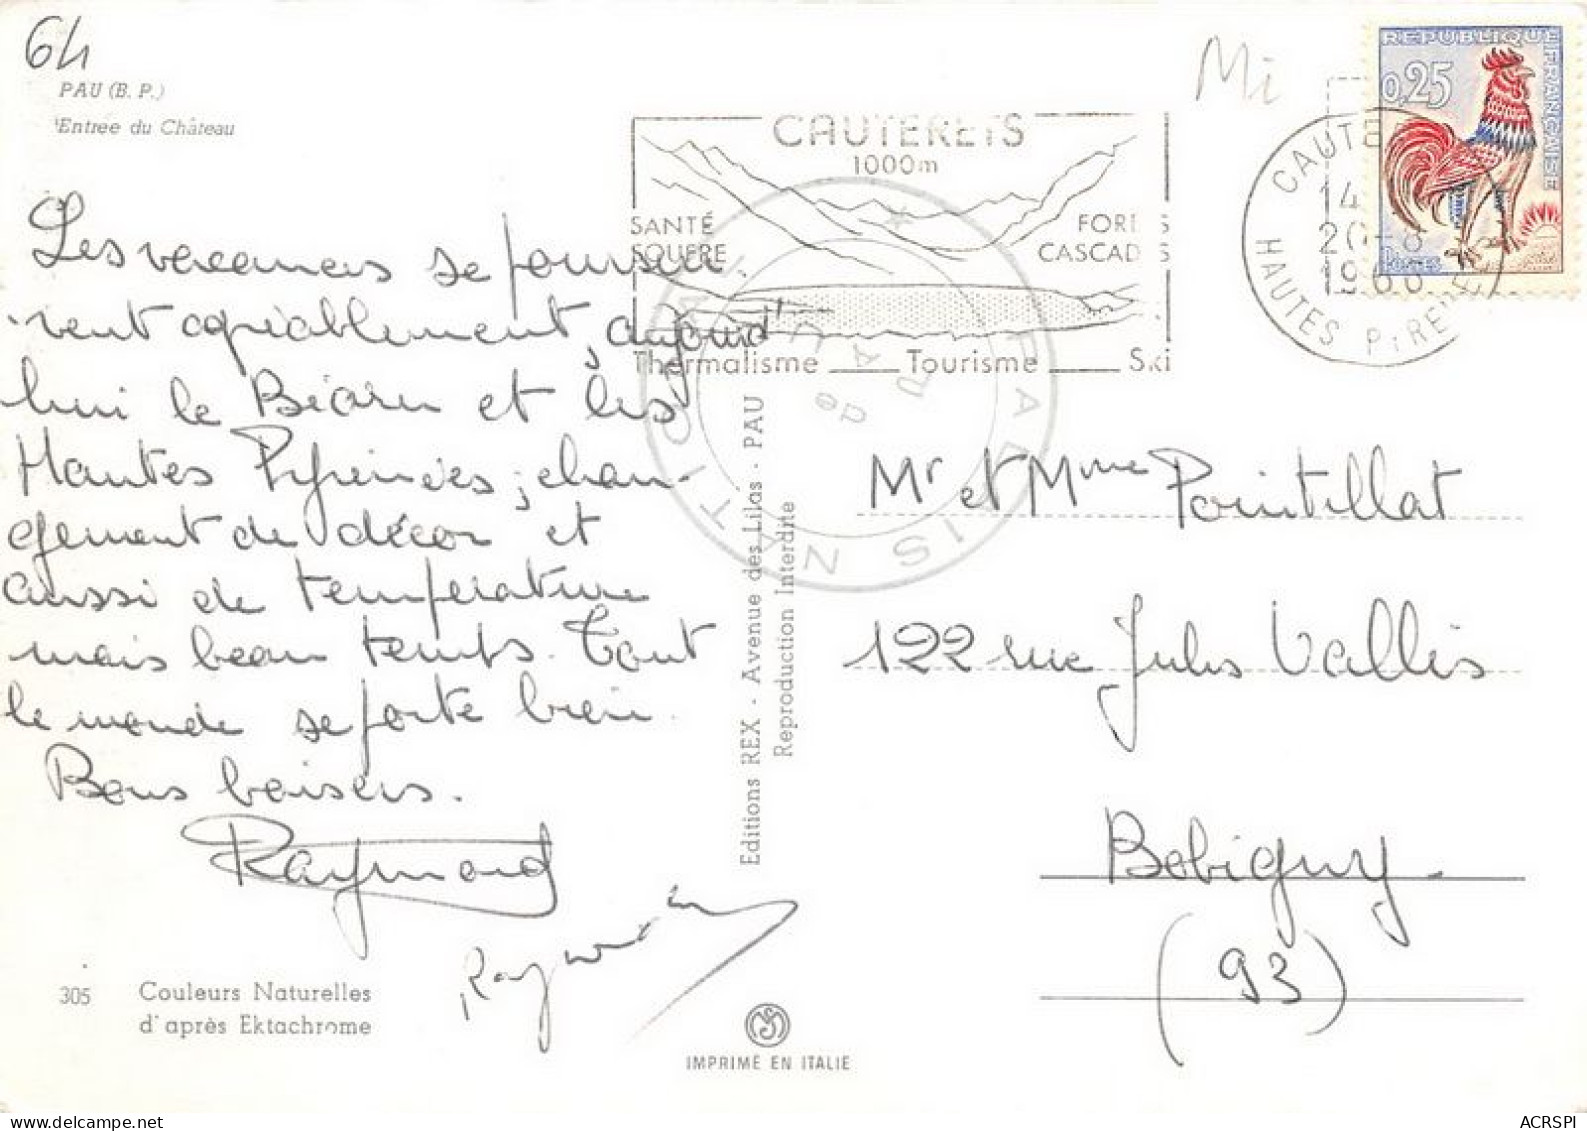 64
PAU (B. P.)
Entrée du Château
Mi
REPUBLIQUE FRANÇAISE
0,25
POSTES
CAUTERETS
1000m
SANTÉ
SOUFRE
FORETS
CASCADES
Thermalisme Tourisme Ski
CAUTE
14
20-8
1966
HAUTES PYRENEES
PALAIS NATIONAL
de PAU
Les vacances se poursui-
vent agréablement, aujourd'
hui le Béarn et les
Hautes Pyrénées, chan-
gement de décor et
aussi de température
mais beau temps. Tout
le monde se porte bien.
Bons baisers.
Raymond
Raymonde
Editions REX - Avenue des Lilas - PAU
Reproduction Interdite
Mr et Mme Pointillat
122 rue Jules Vallès
Bobigny.
(93)
305 Couleurs Naturelles
d'après Ektachrome
IMPRIMÉ EN ITALIE
ACRSPI